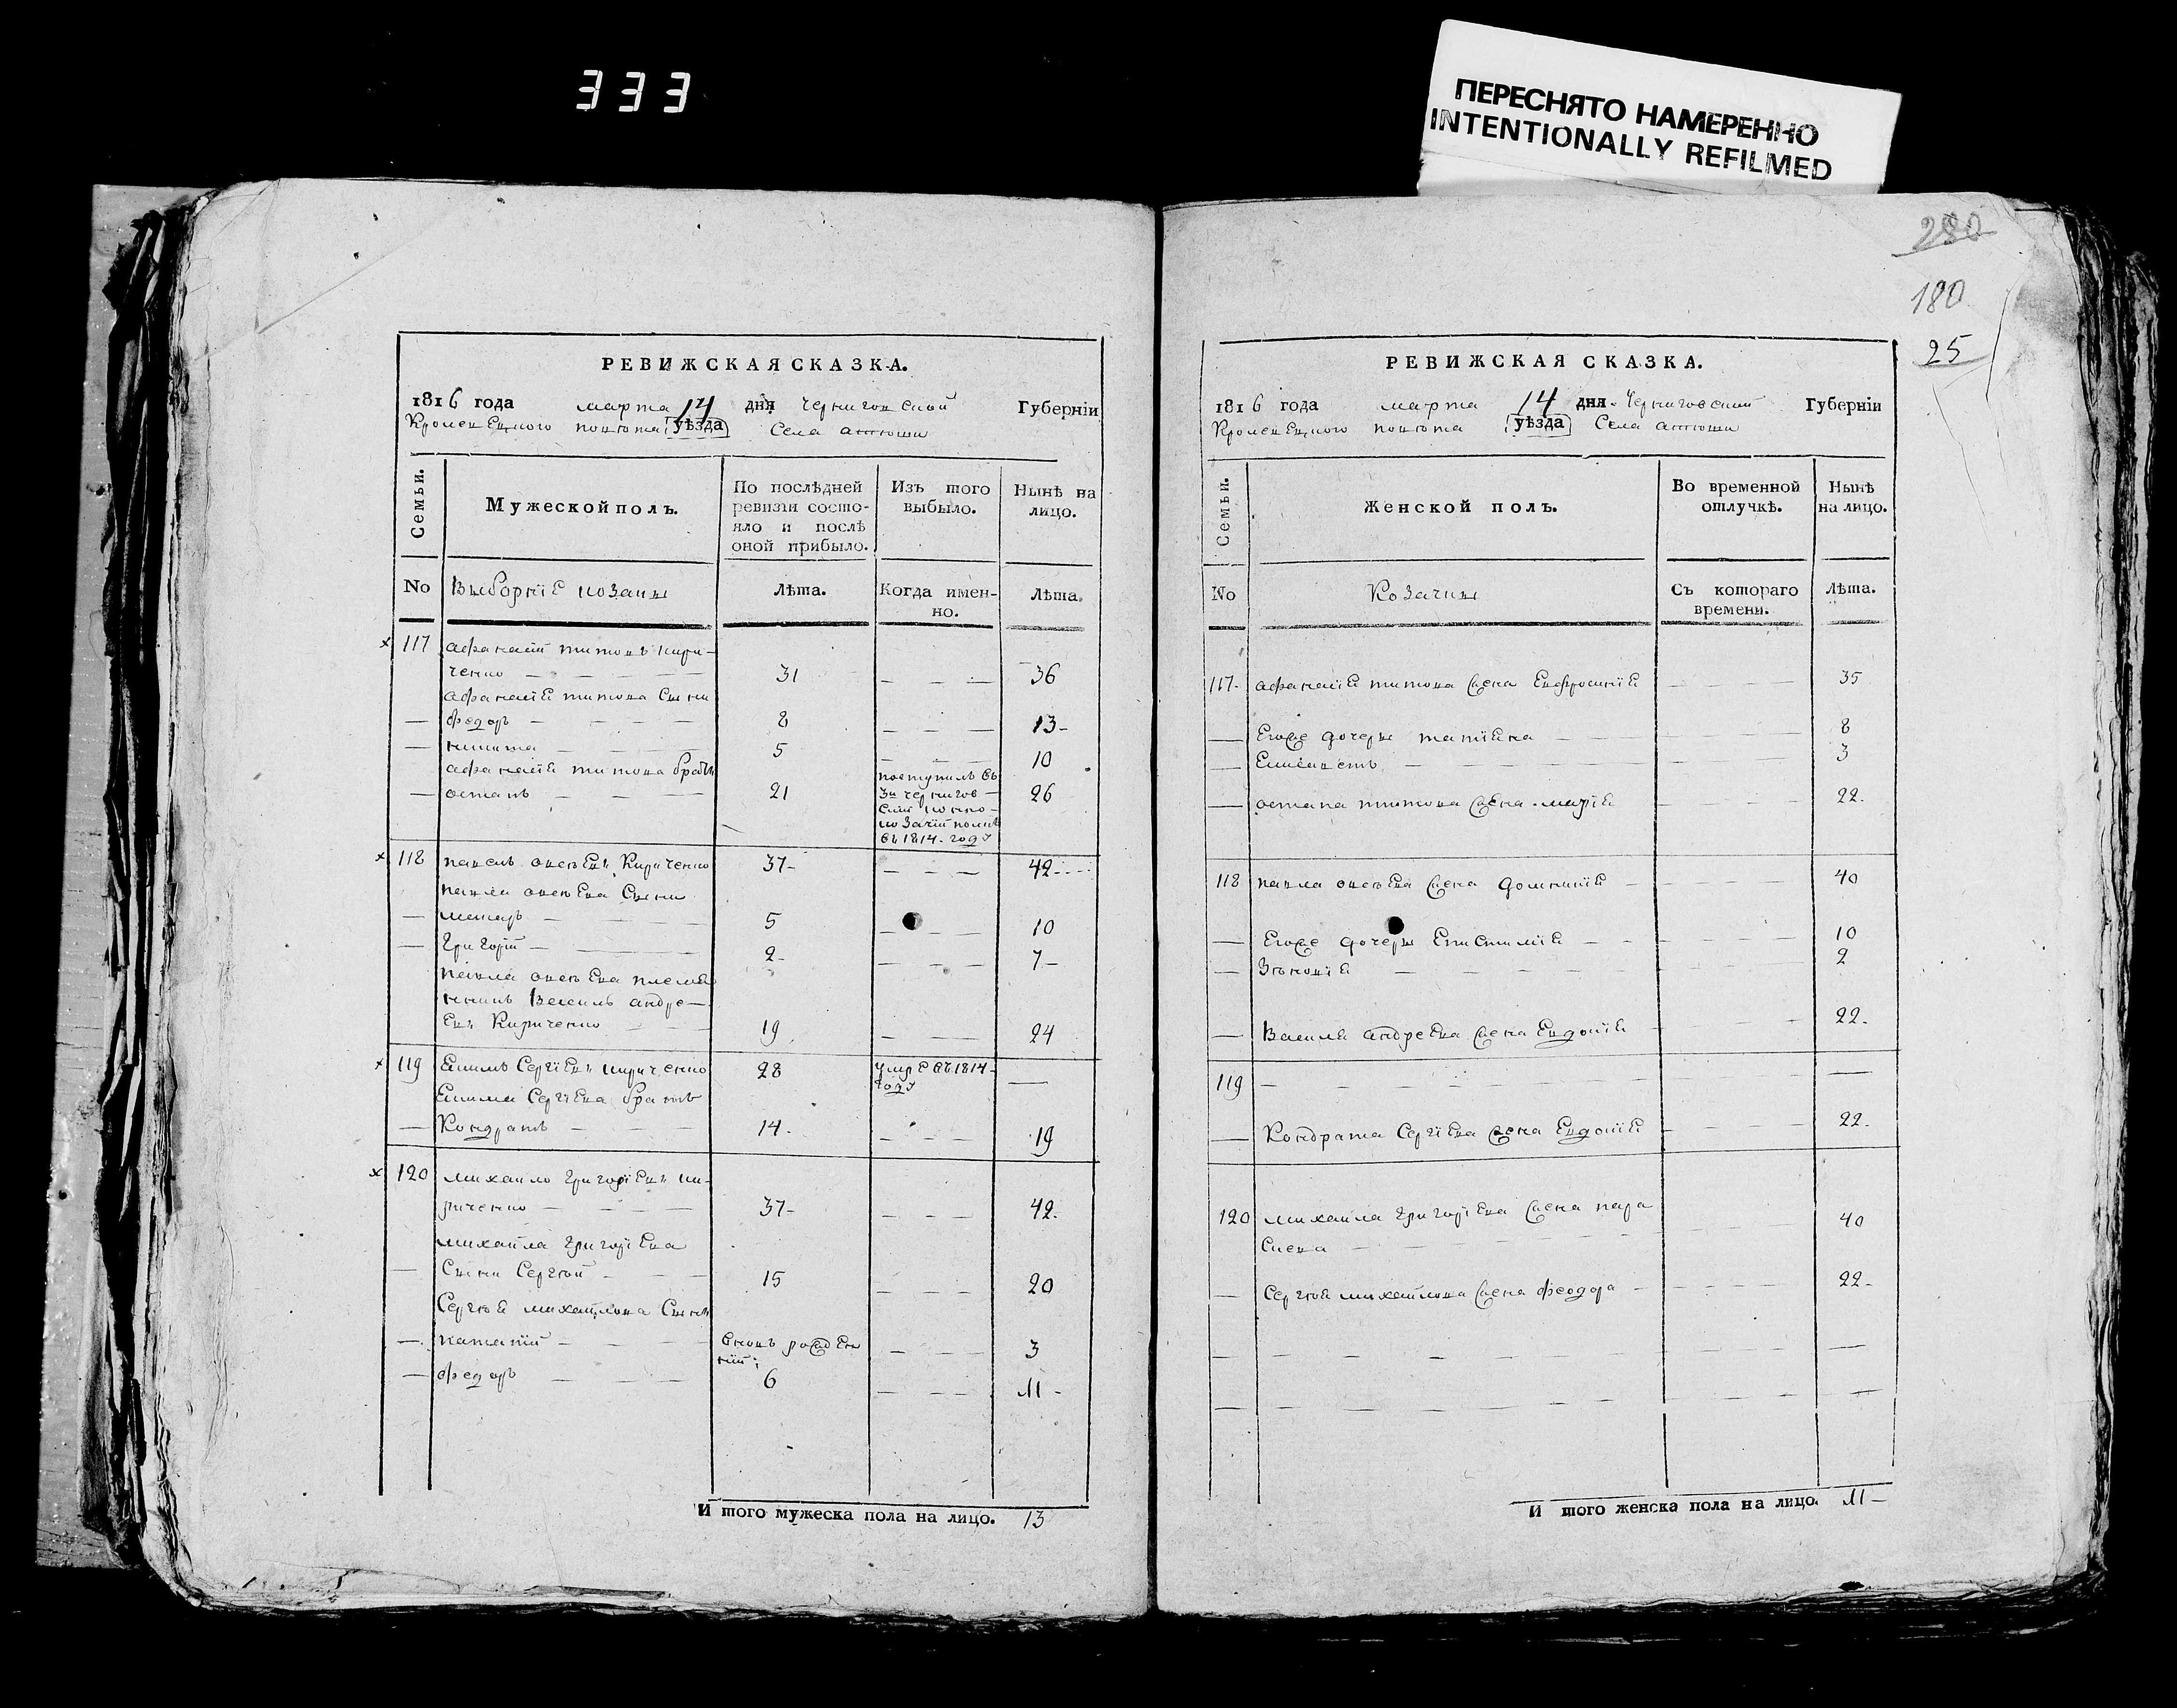 333
ПЕРЕСНЯТО НАМЕРЕННО
INTENTIONALLY REFILMED
280
180
25
РЕВИЖСКАЯ СКАЗКА.
1816 года марта 14 дня Черниговской Губерніи
Кролевецкого повѣта уѣзда Села
Семьи.
Мужеской полъ.
По послѣдней
ревизіи состо-
яло и послѣ
оной прибыло.
Изъ того
выбыло.
Нынѣ на
лицо.
No Виборніе козаки
Лѣта.
Когда имен-
но.
Лѣта.
117 афанасій титовъ кири-
ченко 31 36
афанасія титова сыни
федоръ 8 13
никита 5 10
афанасія титова братъ
остапъ 21 26
поступилъ въ
3й чернигов-
скій конно-
козачій полкъ
въ 1814 году
118 павелъ Кириченко 37 42
павла сыни
5 10
григорій 2 7
павла племя-
никъ Василь андре-
евъ Кириченко 19 24
119 Екимъ Сергіевъ кириченко 28 умре въ 1814
году
Екима Сергіева братъ
Кондратъ 14 19
120 михайло григоріевъ ки-
риченко 37 42
михайла григоріева
сыни Сергѣй 15 20
Сергѣя михайлова сыни
потапій вновь рожден
ній 3
федоръ 6 11
И того мужеска пола на лицо. 13
РЕВИЖСКАЯ СКАЗКА.
1816 года марта 14 дня Черниговской Губерніи
Кролевецкого повѣта уѣзда Села
Семьи.
Женской полъ.
Во временной
отлучкѣ.
Нынѣ
на лицо.
No Козачки
Съ котораго
времени.
Лѣта.
117 афанасія титова жена Евфросинія 35
Егоже дочери татіяна 8
Елисаветъ 3
остапа титова жена марія 22
118 павла жена домникія 40
Егоже дочери Епистимія 10
Зѣновія 2
Василя андреева жена Евдокія 22
119
Кондрата Сергіева жена Евдокія 22
120 михайла григоріева жена пара
скева 40
Сергѣя михайлова жена феодора 22
И того женска пола на лицо. 11